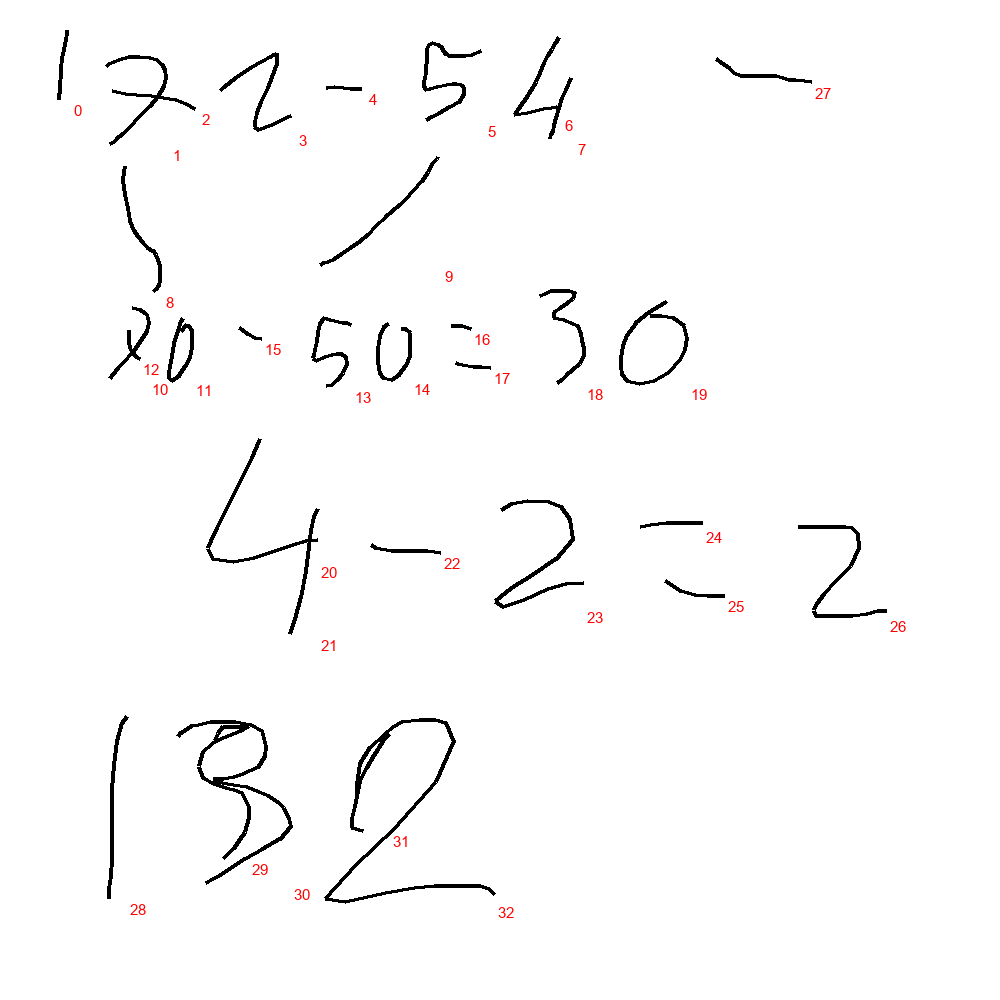 172 - 54 -
0 1 2 3 4 5 6 7 27
8 9
70 - 50 = 30
10 12 11 15 13 14 16 17 18 19
4 - 2 = 2
20 21 22 23 24 25 26
132
28 29 30 31 32